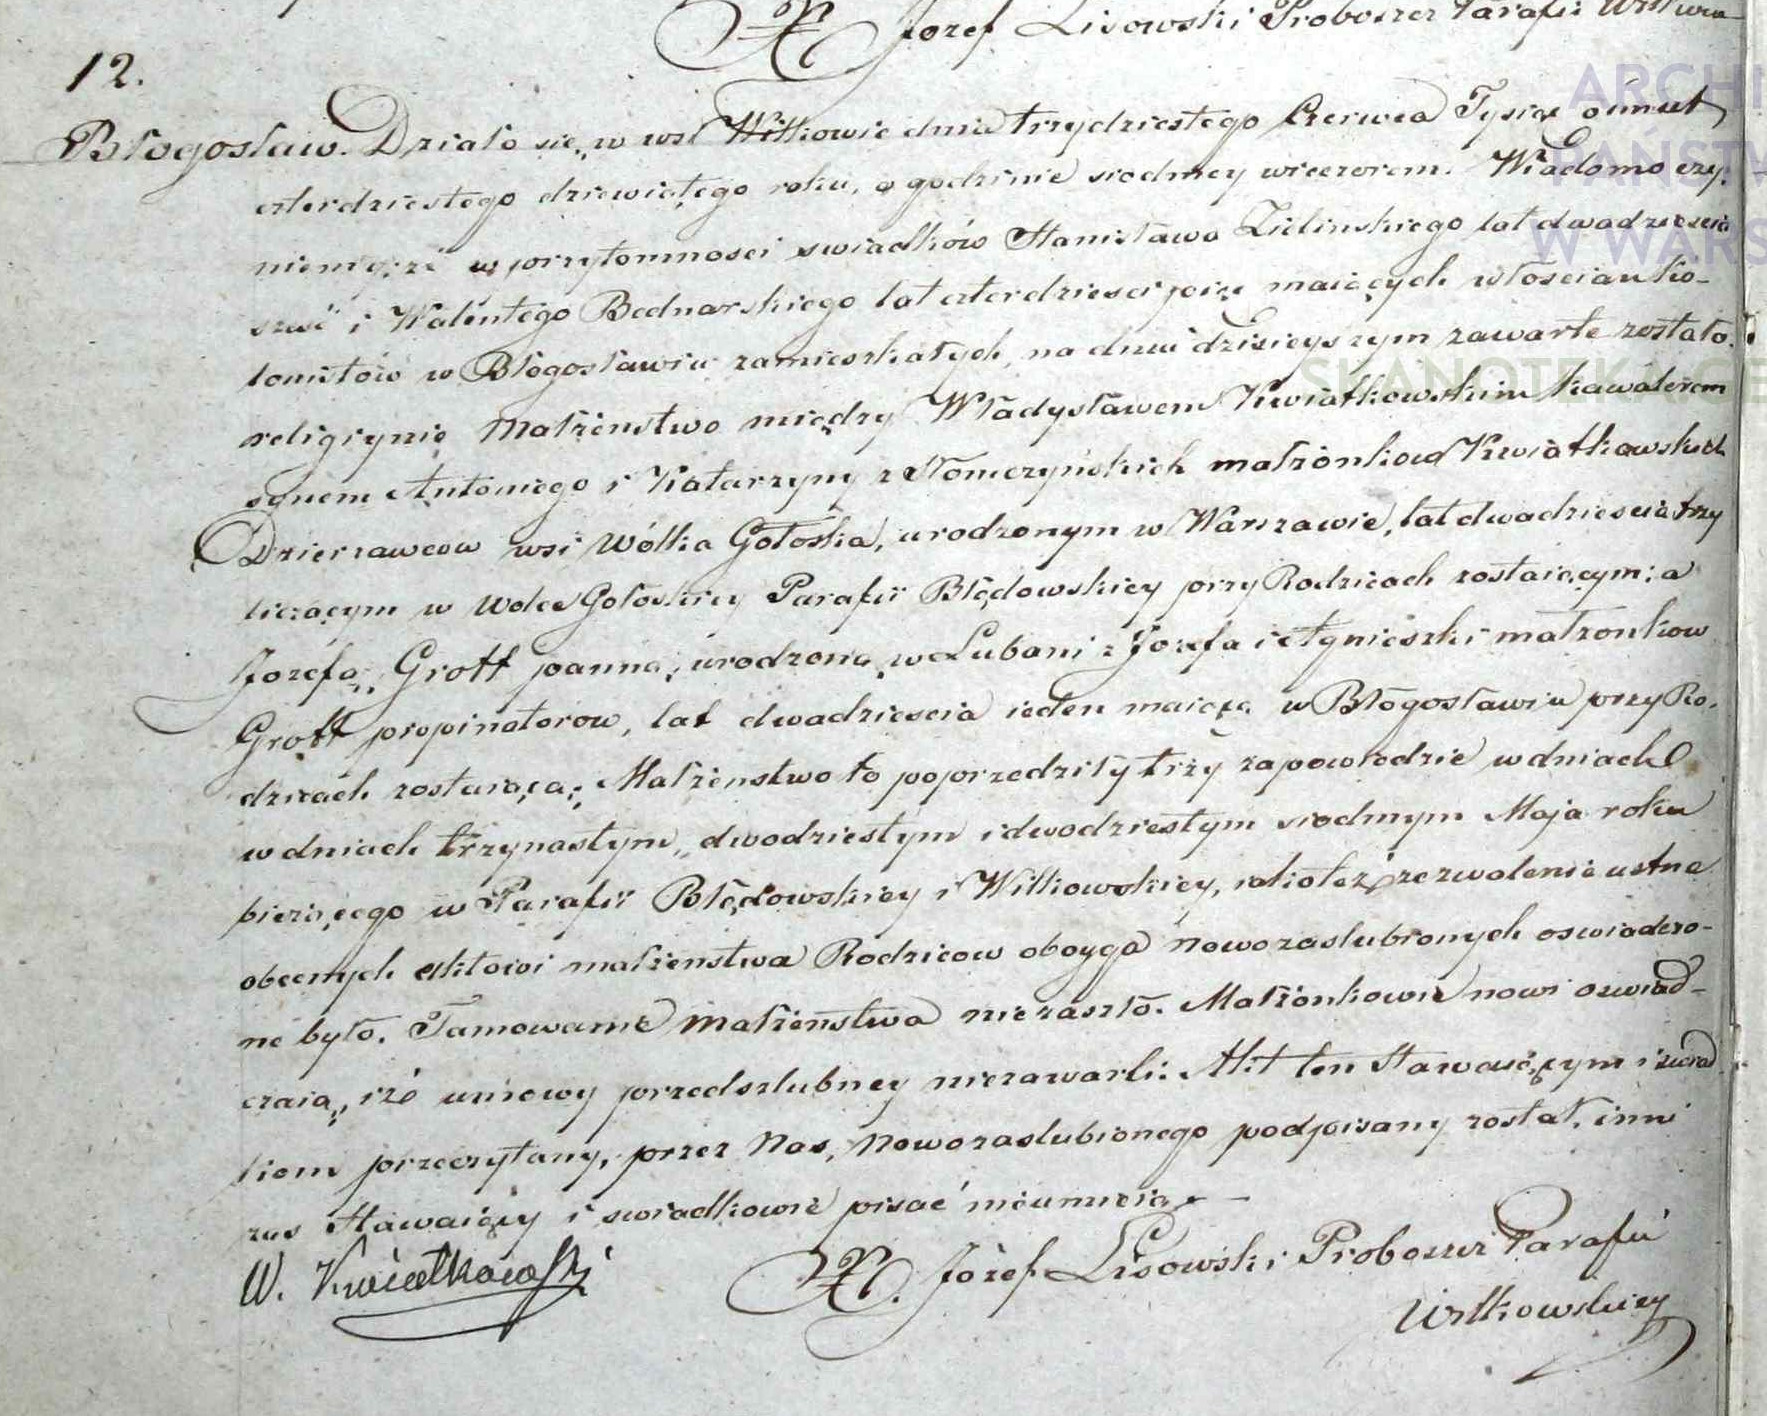 X Jozef Lisowski Proboszcz Parafii
12.
Błogosław. Działo się w wsi Wilkowie dnia trzydziestego Czerwca Tysiąc ośmset
czterdziestego dziewiątego roku, o godzinie siodmey wieczorem. Wiadomo czy-
niemy, że w przytomnosci swiadków Stanisława Zielinskiego lat dwadziescia
szesć i Walentego Bednarskiego lat czterdziesci pięć maiących włoscian ko-
lonistów w Błogosławiu zamieszkałych, na dniu dzisieyszym zawarte zostało
religiynie Małżenstwo między Władysławem Kwiatkowskim kawalerem
synem Antoniego i Katarzyny z Słomczyńskich małżonkow Kwiatkowskich
Dzierzawcow wsi Wólka Gołoska, urodzonym w Warszawie, lat dwadziescia trzy
liczącym w Wolce Gołoskiey Parafii Błędowskiey przy Rodzicach zostaiącym; a
Jozefą Grott panną, urodzoną w Lubani z Jozefa i Agnieszki małżonkow
Grott propinatorow, lat dwadziescia ieden maiącą w Błogosławiu przy Ro-
dzicach zostaiącą; Małżenstwo to poprzedziły trzy zapowiedzie w dniach
w dniach trzynastym, dwodziestym i dwodziestym siodmym Maja roku
bieżącego w Parafii Błędowskiey i Wilkowskiey, iakoteż zezwolenie ustne
obecnych Aktowi małżenstwa Rodzicow oboyga nowozaslubionych oswiadczo-
ne było. Tamowanie małżeństwa niezaszło. Małżonkowie nowi oswiad-
czaią, iże umowy przedszlubney niezawarli. Akt ten Stawaiącym i swiad
kom przeczytany, przez Nas, Nowozaslubionego podpisany został, inni
zas Stawaiący i swiadkowie pisać nieumieią. —
W. Kwiatkowski X. Józef Lisowski Proboszcz Parafii
Wilkowskiey
ARCHI
PAŃSTW
W WARS
SKANOTEKA GE